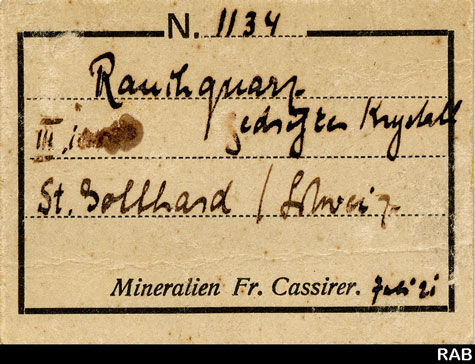 N. 1134
Rauchquarz.
gedrehter Krystall
III,
St. Gotthard / Schweiz.
Mineralien Fr. Cassirer. Juli 21
RAB